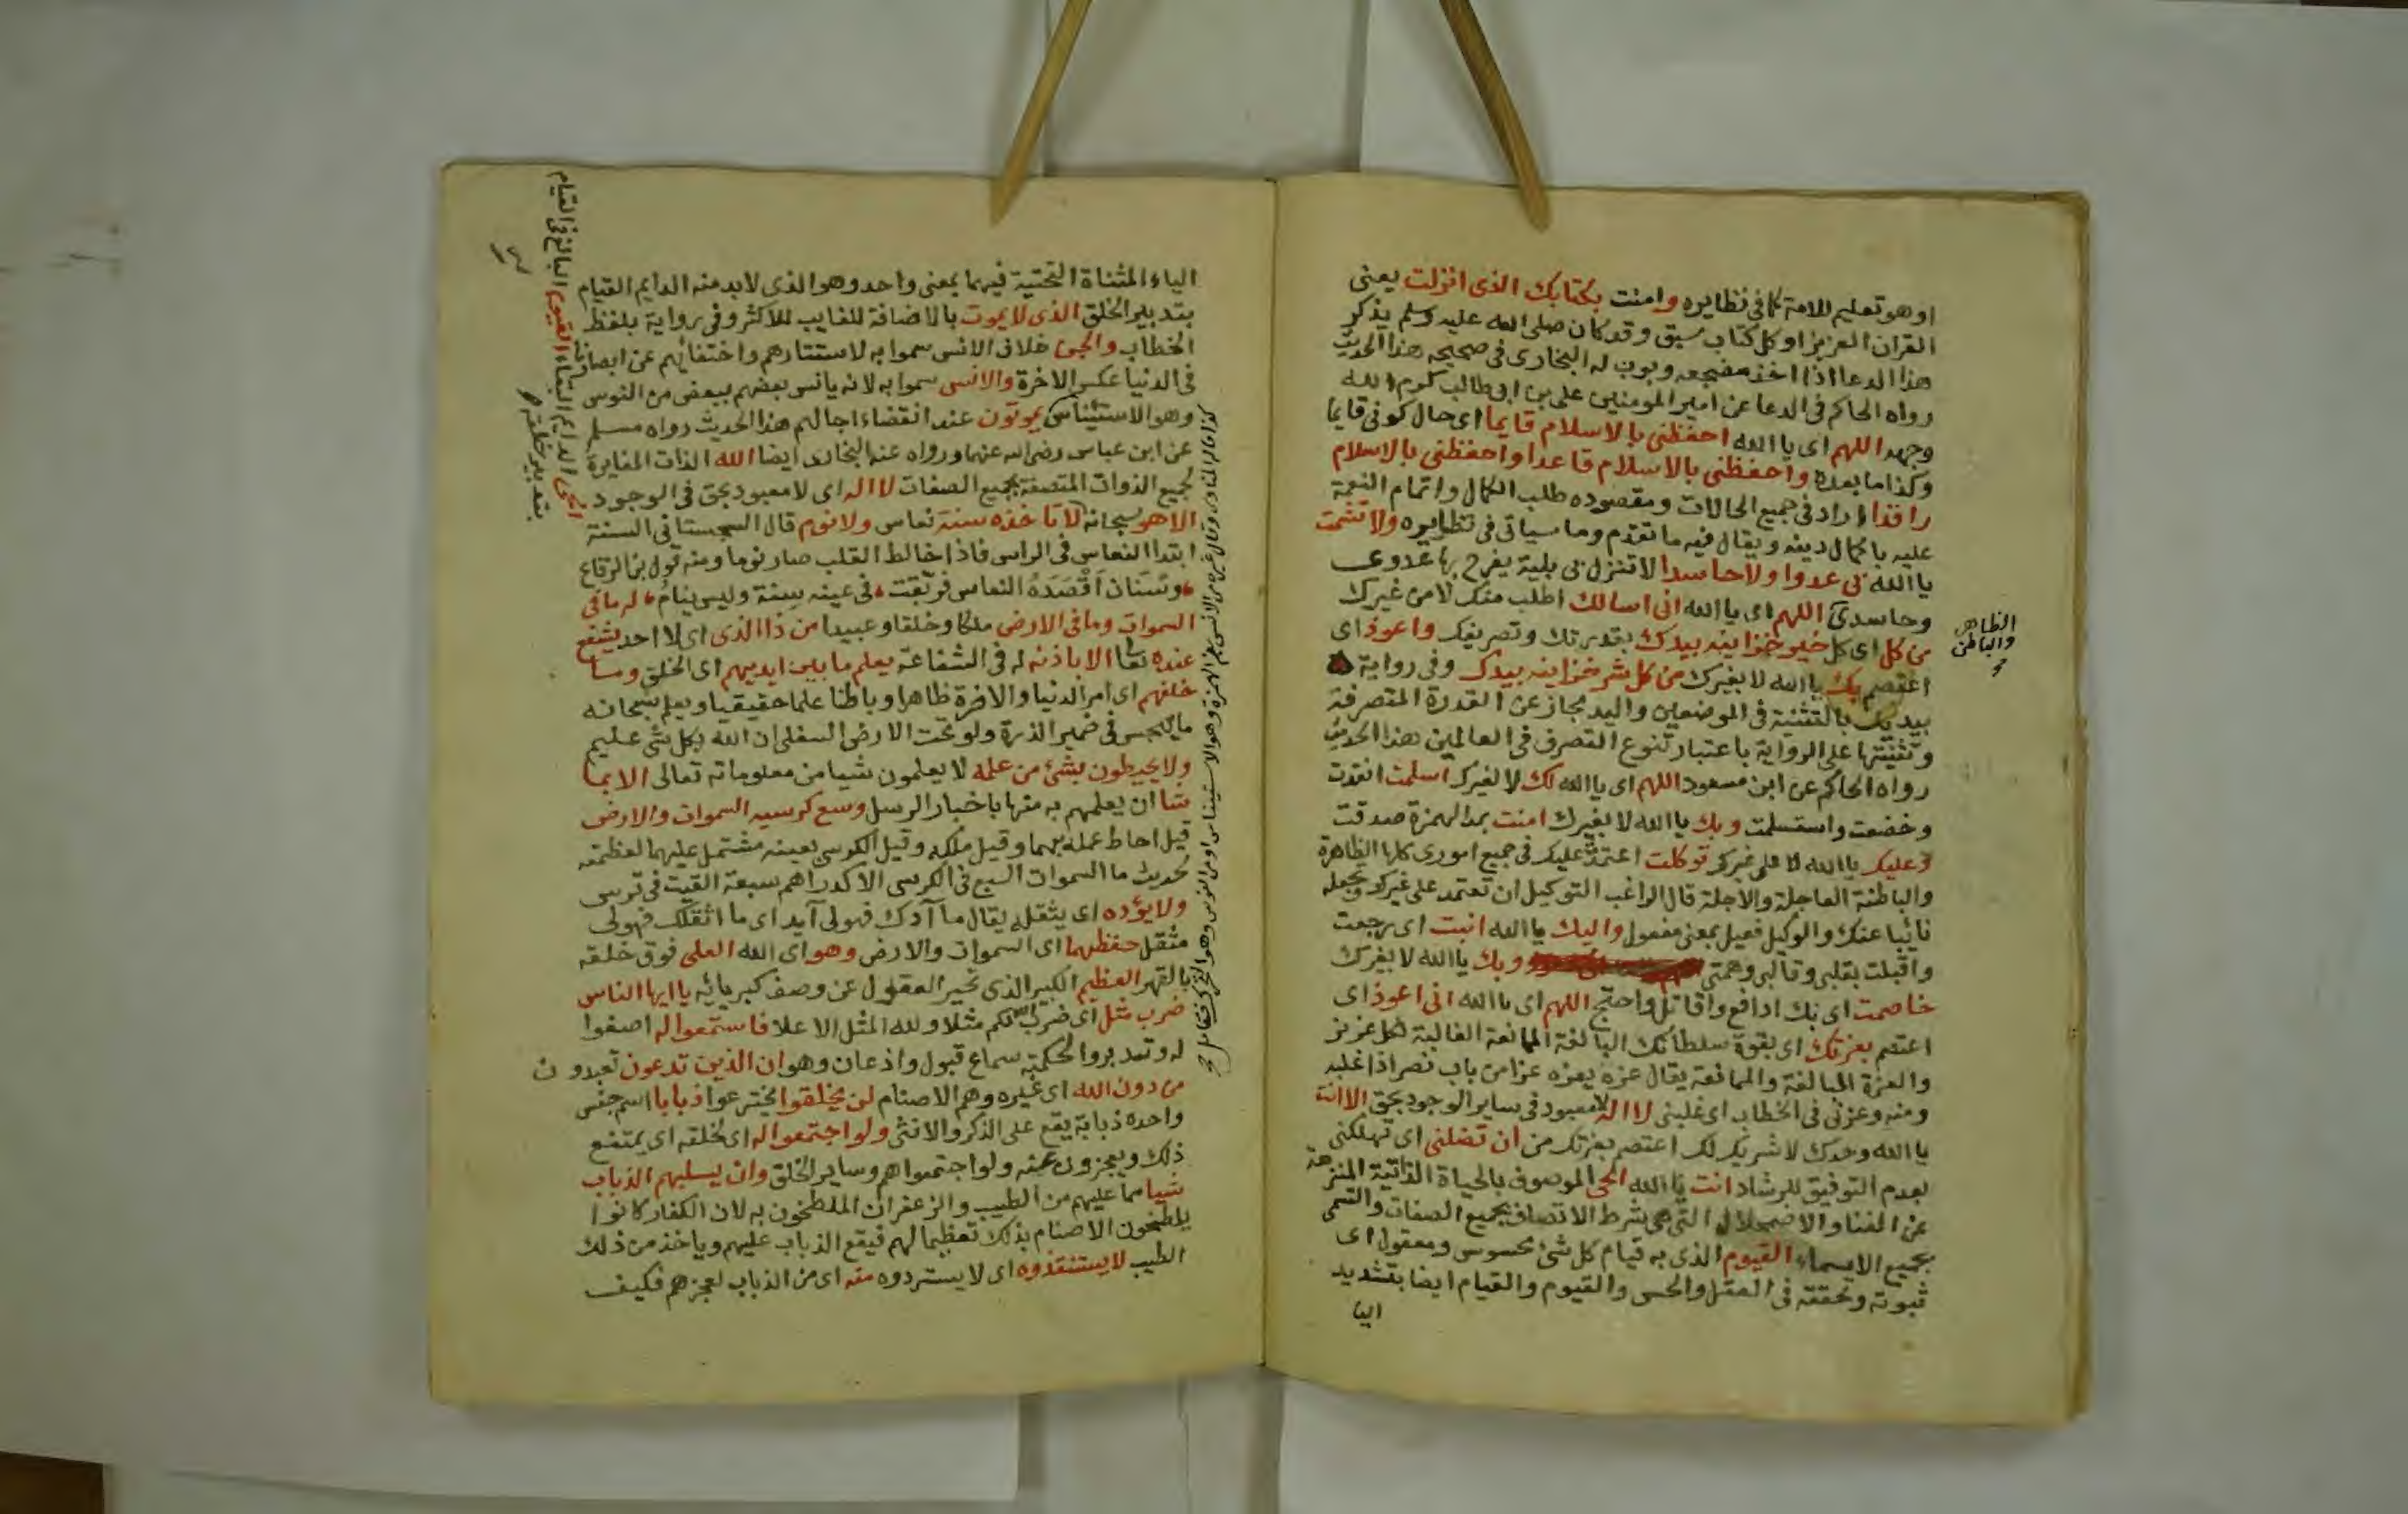 او هو تعليم للامة كما فى نظايره وامنت بكتابك الذى انزلت يعنى
القران العزيز او كل كتاب سبق وقد كان صلى الله عليه وسلم يذكر
هذا الدعا اذا اخذ مضجعه وبوب له البخارى فى صحيحه هذا الحديث
رواه الحاكم فى الدعا عن امير المومنين على بن ابى طالب كرم الله
وجهه اللهم اى يا الله احفظنى بالاسلام قايما اى حال كونى قايما
وكذا ما بعده واحفظنى بالاسلام قاعدا واحفظنى بالاسلام
راقدا اراد فى جميع الحالات ومقصوده طلب الكمال واتمام النعمة
عليه باكمال دينه ويقال فيه ما تقدم وما سياتى فى نظايره ولا تشمت
يا الله بى عدوا ولا حاسدا لا تنزل بى بلية يفرح بها عدوى
وحاسدى اللهم اى يا الله انى اسالك اطلب منك لا من غيرك
من كل اى كل خير خزاينه بيدك بقدرتك وتصريفك واعوذ اى
اعتصم بك يا الله لا بغيرك من كل شر خزاينه بيدك وفى رواية
بيديك بالتثنية فى الموضعين واليد مجاز عن القدرة المتصرفة
وتثنيتها على الرواية باعتبار تنوع التصرف فى العالمين هذا الحديث
رواه الحاكم عن ابن مسعود اللهم اى يا الله لك لا لغيرك اسلمت انقدت
وخضعت واستسلمت وبك يا الله لا بغيرك امنت بمد الهمزة صدقت
وعليك يا الله لا على غيرك توكلت اعتمدت عليك فى جميع امورى كلها الظاهرة
والباطنة العاجلة والاجلة قال الراغب التوكيل ان تعتمد على غيرك وتجعله
نائبا عنك والوكيل فعيل بمعنى مفعول واليك يا الله انبت اى رجعت
واقبلت بقلبى وقالبى وهمتى وبك يا الله لا بغيرك
خاصمت اى بك ادافع واقاتل واحتج اللهم اى يا الله انى اعوذ اى
اعتصم بعزتك اى بقوة سلطانك البالغة المانعة الغالبة لكل عزيز
والعزة المبالغة والممانعة يقال عزه يعزه عزا من باب نصر اذا غلبه
ومنه وعزنى فى الخطاب اى غلبنى لا اله لا معبود فى ساير الوجود بحق الا انت
يا الله وحدك لا شريك لك اعتصم بعزتك من ان تضلنى اى تهلكنى
بعدم التوفيق للرشاد انت يا الله الحى الموصوف بالحياة الذاتية المنزهة
عن الفنا والاضمحلال التى هى شرط الاتصاف بجميع الصفات والتسمى
بجميع الاسماء القيوم الذى به قيام كل شئ محسوس ومعقول اى
ثبوته وتحققه فى العقل والحس والقيوم والقيام ايضا بتشديد
اليا
الظاهر
والباطن
الياء المثناة التحتية فيهما بمعنى واحد وهو الذى لا بد منه الدايم القيام
بتدبير الخلق الذى لا يموت بالاضافة للغايب للاكثر وفى رواية بلفظ
الخطاب والجن خلاف الانس سموا به لاستتارهم واختفائهم عن ابصارنا
فى الدنيا عكس الاخرة والانس سموا به لانه يانس بعضهم ببعض من النوس
وهو الاستيناس يموتون عند انقضاء اجالهم هذا الحديث رواه مسلم
عن ابن عباس رضى الله عنهما ورواه عنه البخارى ايضا الله الذات المغايرة
لجميع الذوات المتصفة بجميع الصفات لا اله اى لا معبود بحق فى الوجود
الا هو سبحانه لا تاخذه سنة نعاس ولا نوم قال السجستانى السنة
ابتدا النعاس فى الراس فاذا خالط القلب صار نوما ومنه قول بن الرقاع
وسنان اقصده النعاس فرنقت فى عينه سنة وليس بنام له ما فى
السموات وما فى الارض ملكا وخلقا وعبيدا من ذا الذى اى لا احد يشفع
عنده تعا الا باذنه له فى الشفاعة يعلم ما بين ايديهم اى الخلق وما
خلفهم اى امر الدنيا والاخرة ظاهرا وباطنا علما حقيقيا ويعلم سبحانه
ما يهجس فى ضمير الذرة ولو تحت الارض السفلى ان الله بكل شى عليم
ولا يحيطون بشئ من علمه لا يعلمون شيا من معلوماته تعالى الا بما
شا ان يعلمهم به منها باخبار الرسل وسع كرسيه السموات والارض
قيل احاط علمه بهما وقيل ملكه وقيل الكرسى بعينه مشتمل عليهما لعظمته
لحديث ما السموات السبع فى الكرسى الا كدراهم سبعة القيت فى ترس
ولا يؤده اى يثقله يقال ما آدك فهو لى آيد اى ما اثقلك فهو لى
مثقل حفظهما اى السموات والارض وهو اى الله العلى فوق خلقه
بالقهر العظيم الكبير الذى تحير العقول عن وصف كبريائه يا ايها الناس
ضرب مثل اى ضرب لكم مثلا ولله المثل الاعلا فاستمعوا له اصغوا
له وتدبروا لحكمته سماع قبول واذعان وهو ان الذين تدعون تعبدون
من دون الله اى غيره وهم الاصنام لن يخلقوا يخترعوا ذبابا اسم جنس
واحده ذبابة يقع على الذكر والانثى ولو اجتمعوا له اى لخلقه اى يمتنع
ذلك ويعجزون عنه ولو اجتمعوا هم وساير الخلق وان يسلبهم الذباب
شيا مما عليهم من الطيب والزعفران الملطخون به لان الكفار كانوا
يلطخون الاصنام بذلك تعظيما لهم فيقع الذباب عليهم وياخذ من ذلك
الطيب لا يستنقذوه اى لا يستردوه منه اى من الذباب لعجزهم فكيف
الحى الدايم البقاء القيوم البالغ فى القيام
بتدبير خلقه